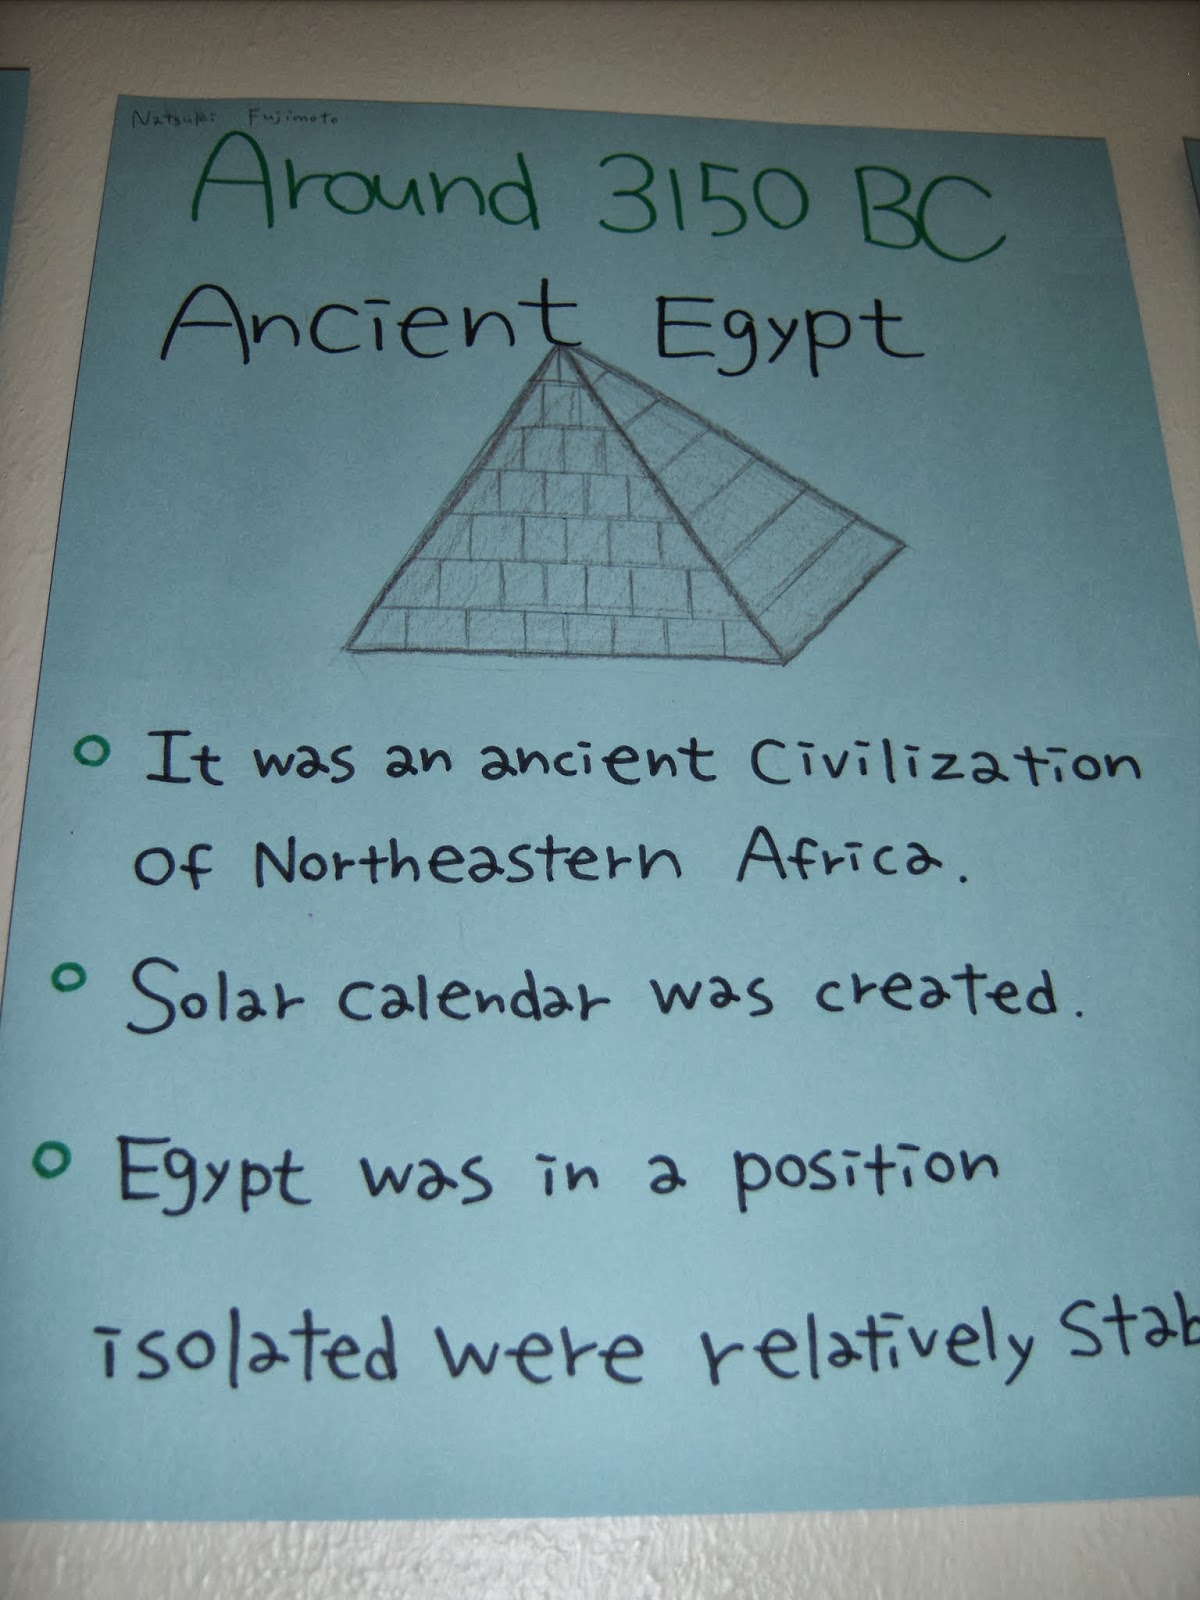 Natsuki Fujimoto
Around 3150 BC
Ancient Egypt
It was an ancient Civilization
of Northeastern Africa.
Solar calendar was created.
Egypt was in a position
isolated were relatively Stab